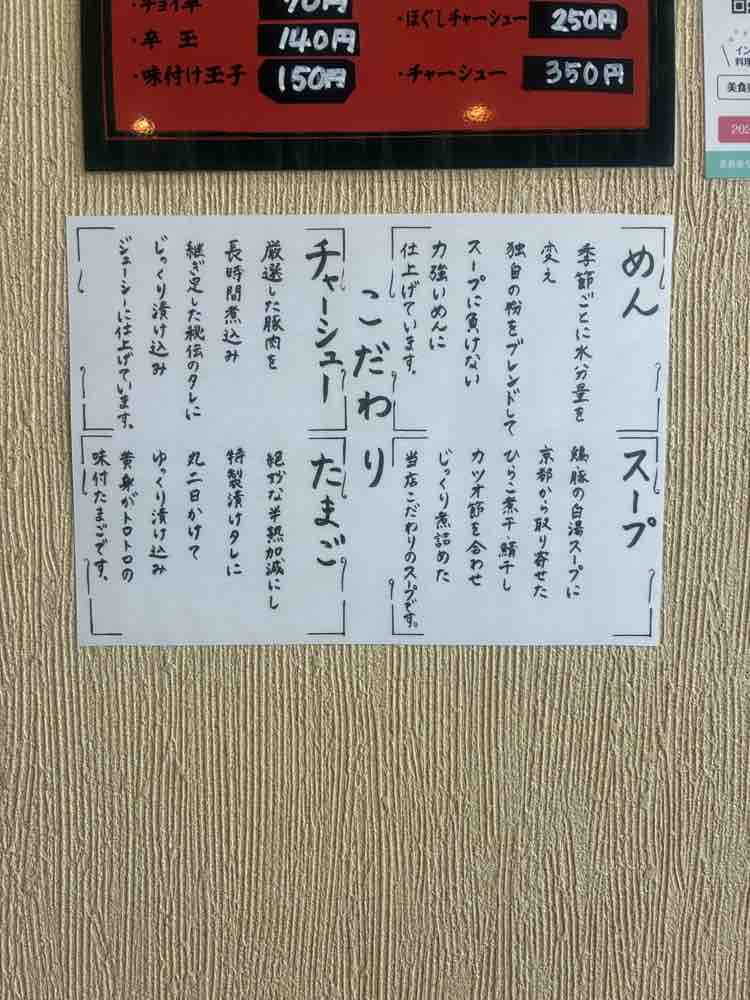 ・チョイ辛
90円
・辛王
140円
・味付け玉子
150円
・ほぐしチャーシュー
250円
・チャーシュー
350円
美食
202
こだわり
めん
季節ごとに水分量を
変え
独自の粉をブレンドして
スープに負けない
力強いめんに
仕上げています。
スープ
鶏豚の白湯スープに
京都から取り寄せた
ひらこ煮干・鯖干し
カツオ節を合わせ
じっくり煮詰めた
当店こだわりのスープです。
チャーシュー
厳選した豚肉を
長時間煮込み
継ぎ足した秘伝のタレに
じっくり漬け込み
ジューシーに仕上げています。
たまご
絶妙な半熟加減にし
特製漬けタレに
丸二日かけて
ゆっくり漬け込み
黄身がトロトロの
味付たまごです。